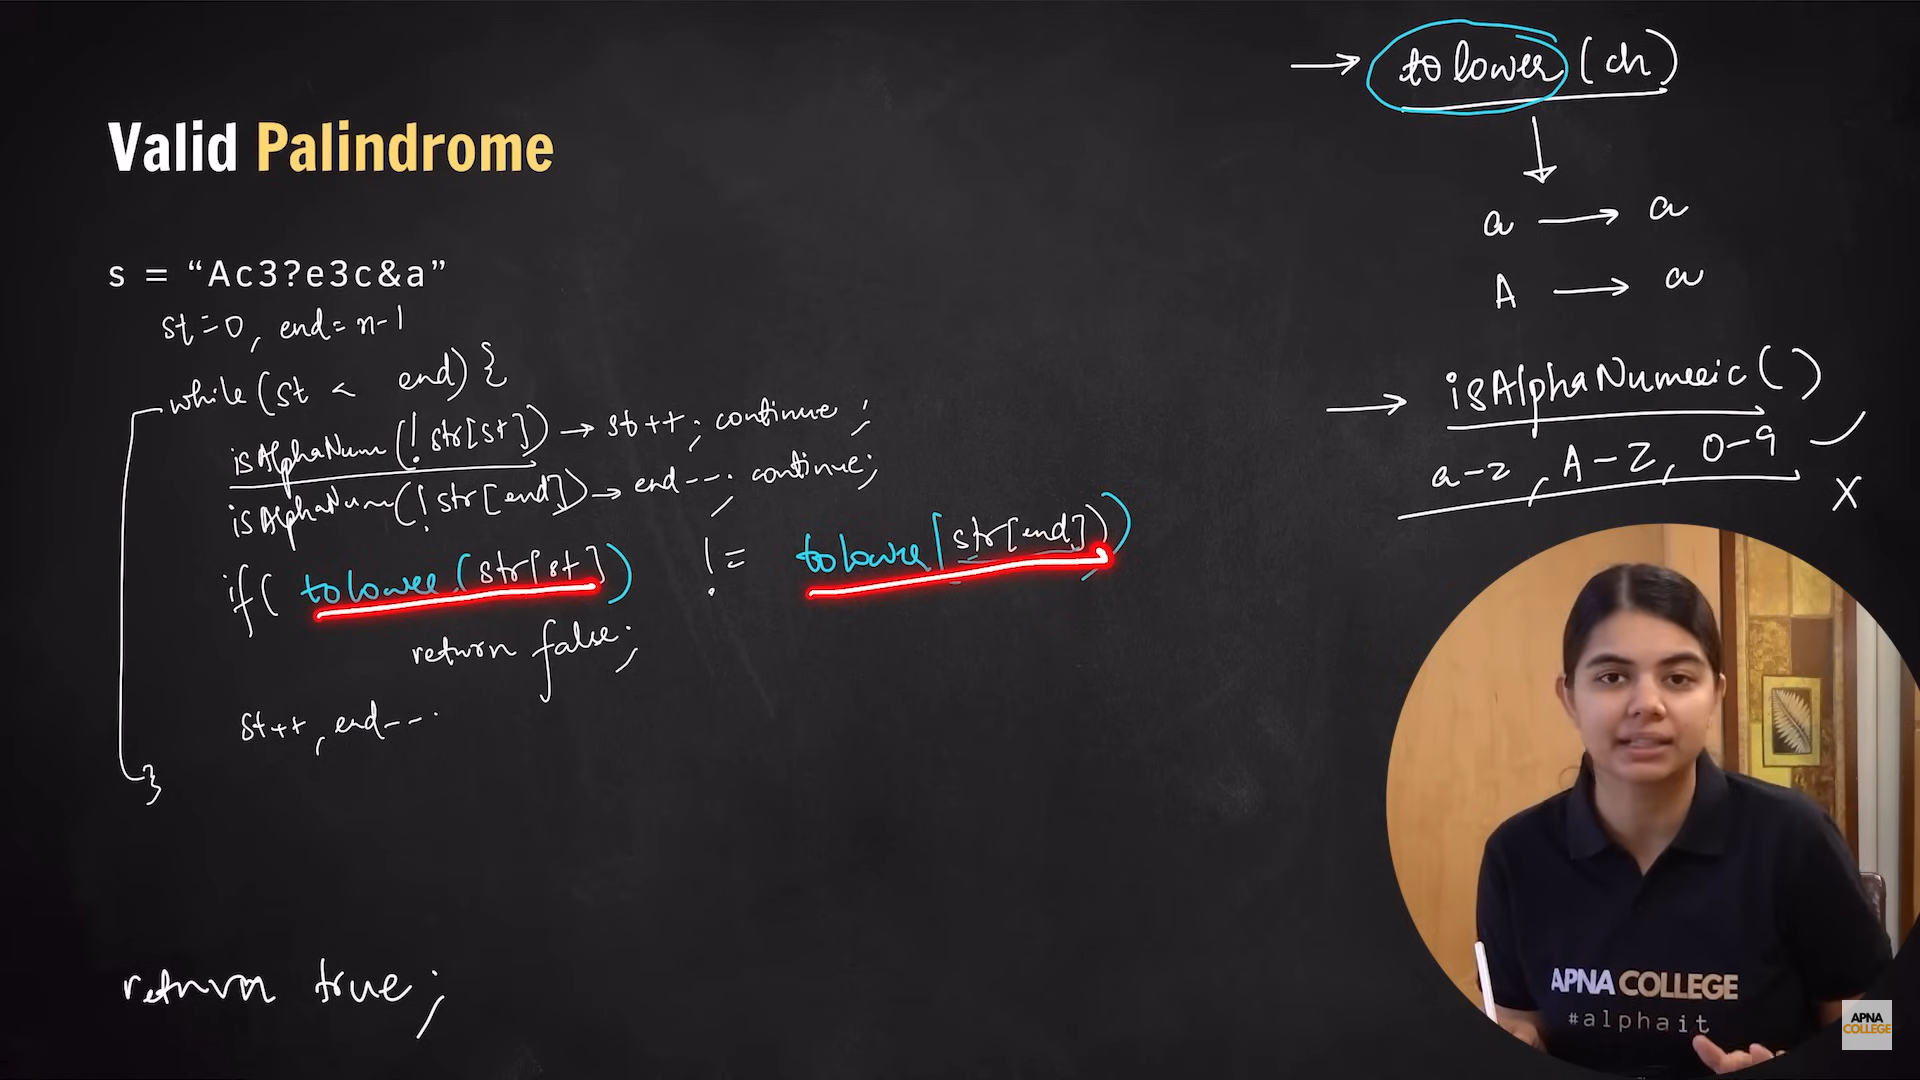 Valid Palindrome
s = “Ac3?e3c&a”
st=0, end=n-1
while(st < end){
isAlphaNum(!str[st]) → st++; continue;
isAlphaNum(!str[end]) → end--; continue;
if( tolower(str[st]) != tolower(str[end]))
return false;
st++, end--.
}
return true;
→ tolower(ch)
a → a
A → a
→ isAlphaNumeric()
a-z, A-Z, 0-9
X
APNA COLLEGE
#alphait
APNA
COLLEGE